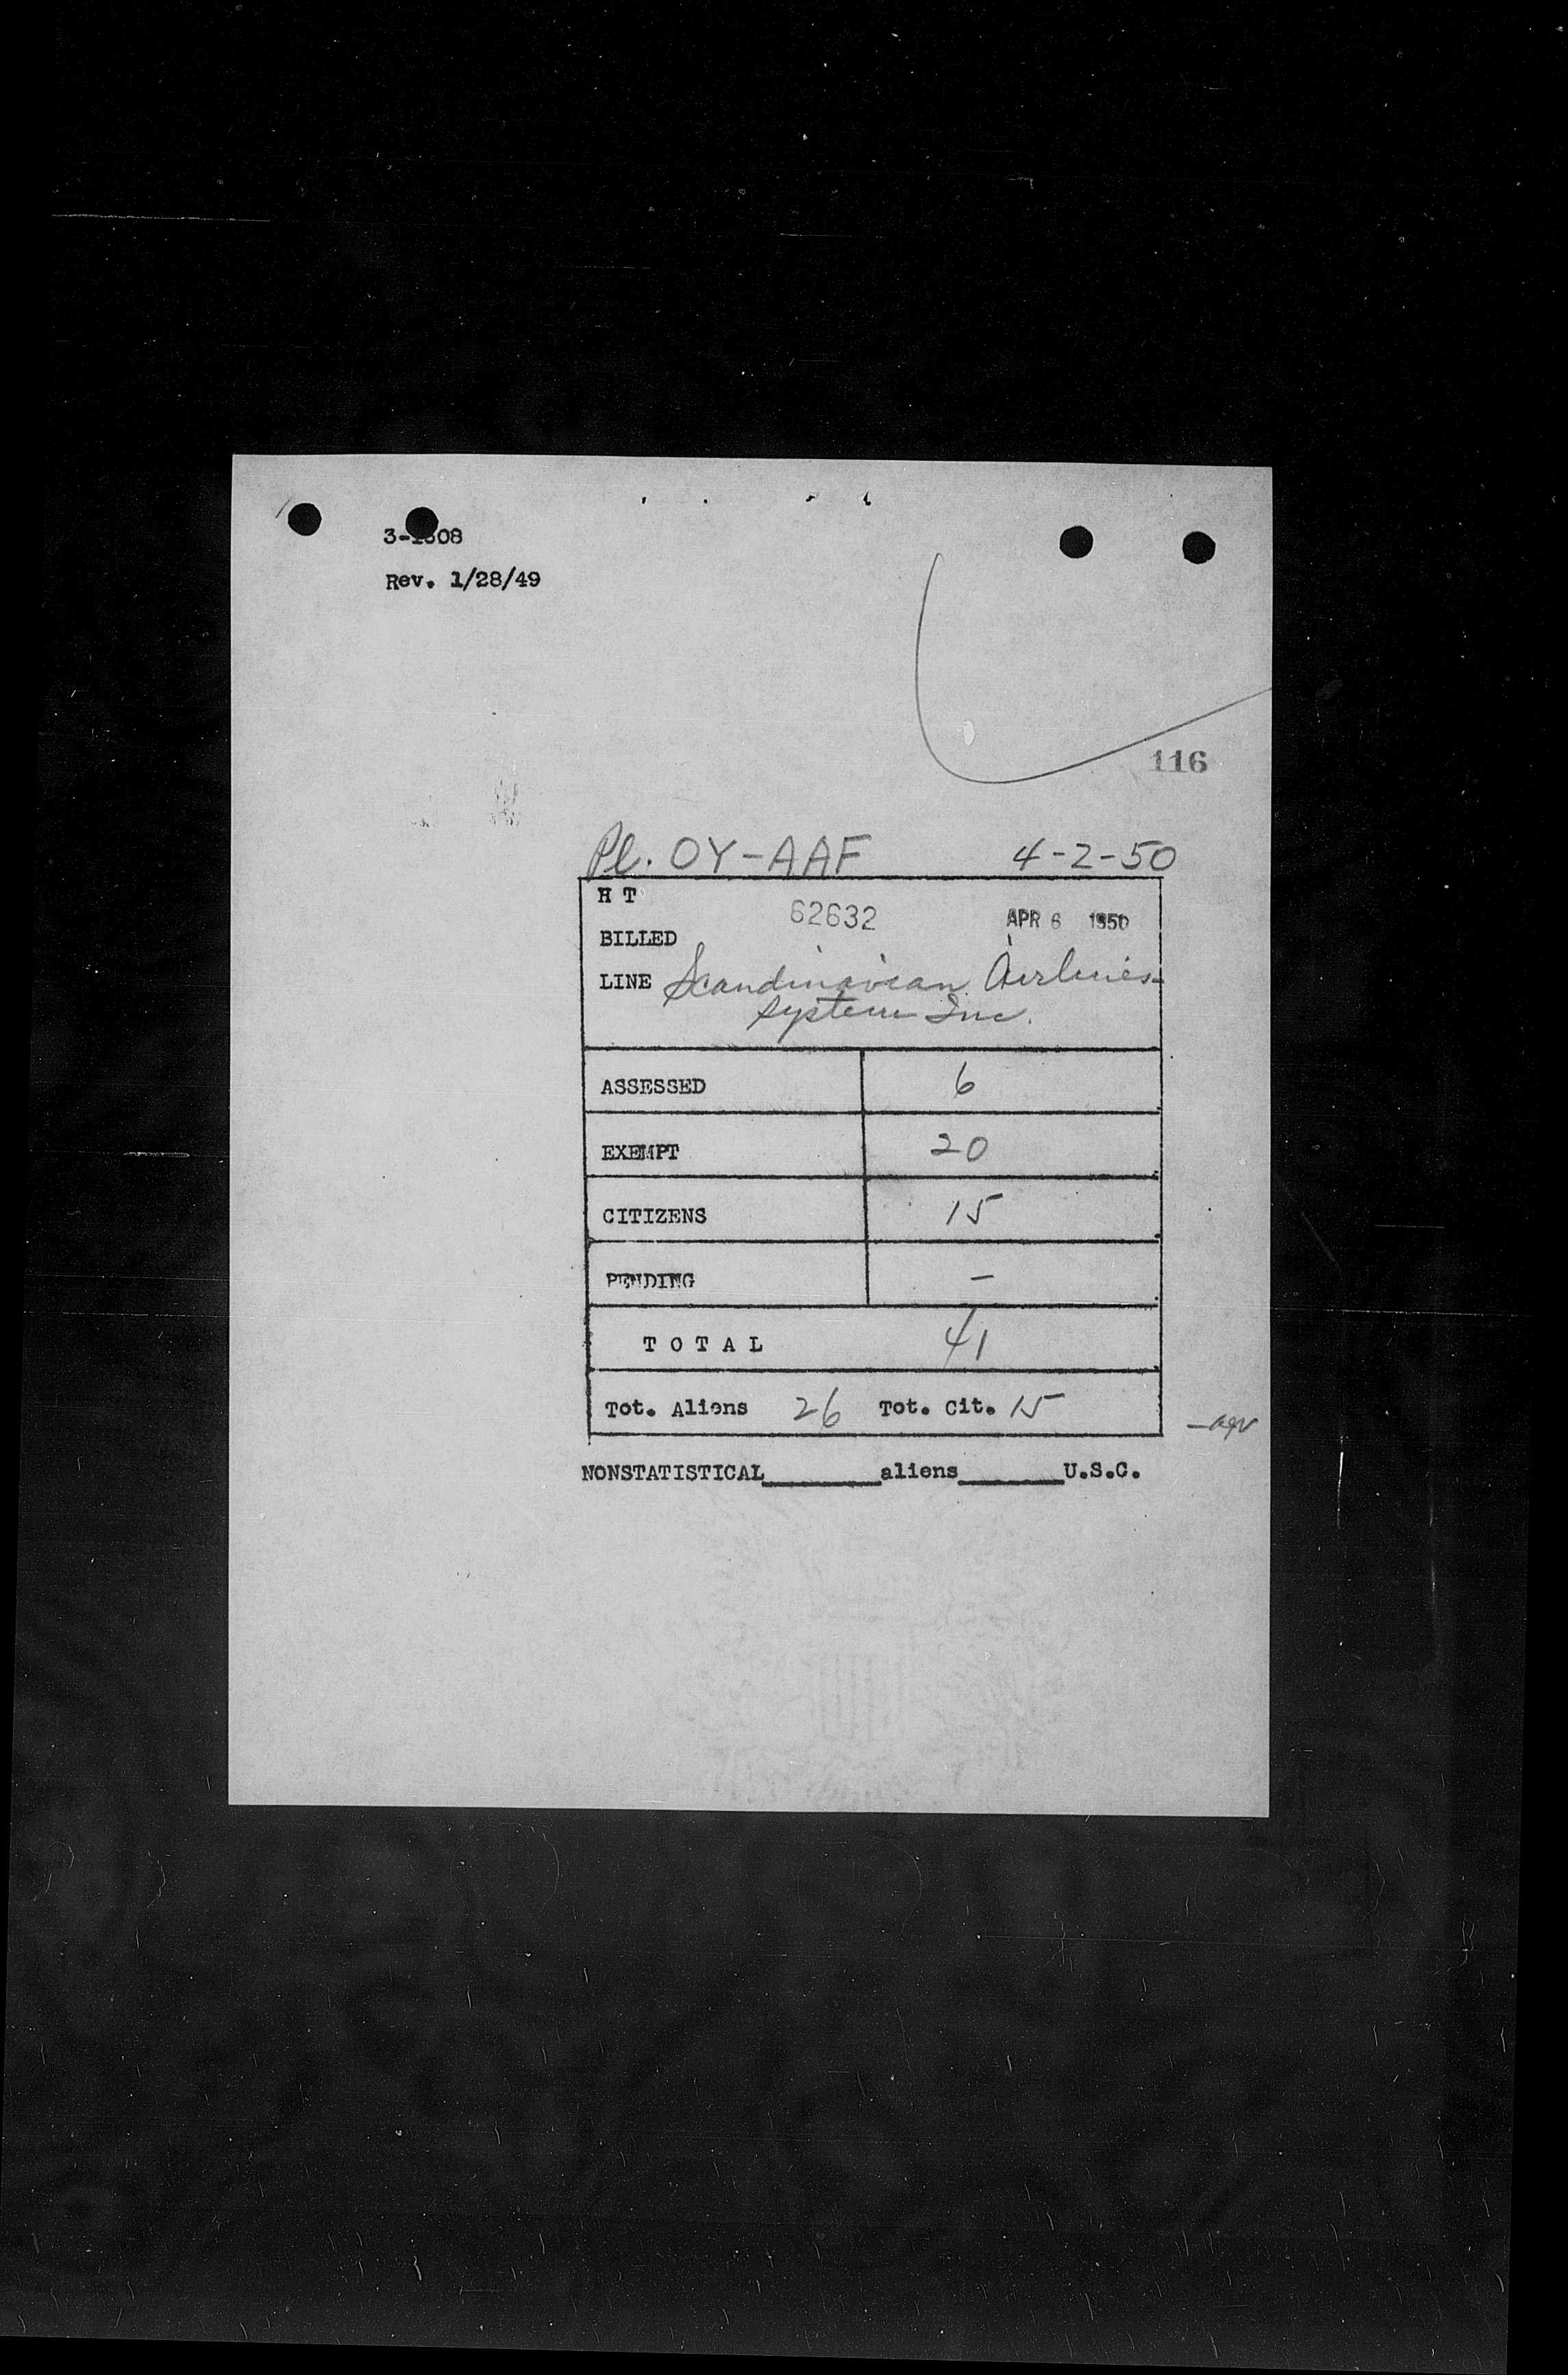 Rev. 1/28/49
116
Pl. OY-AAF 4-2-50
H T
62632 APR 6 1950
BILLED
LINE Scandinavian Airlines
System Inc.
ASSESSED 6
EXEMPT 20
CITIZENS 15
PENDING -
TOTAL 41
Tot. Aliens 26 Tot. Cit. 15
NONSTATISTICAL________aliens_______U.S.C.